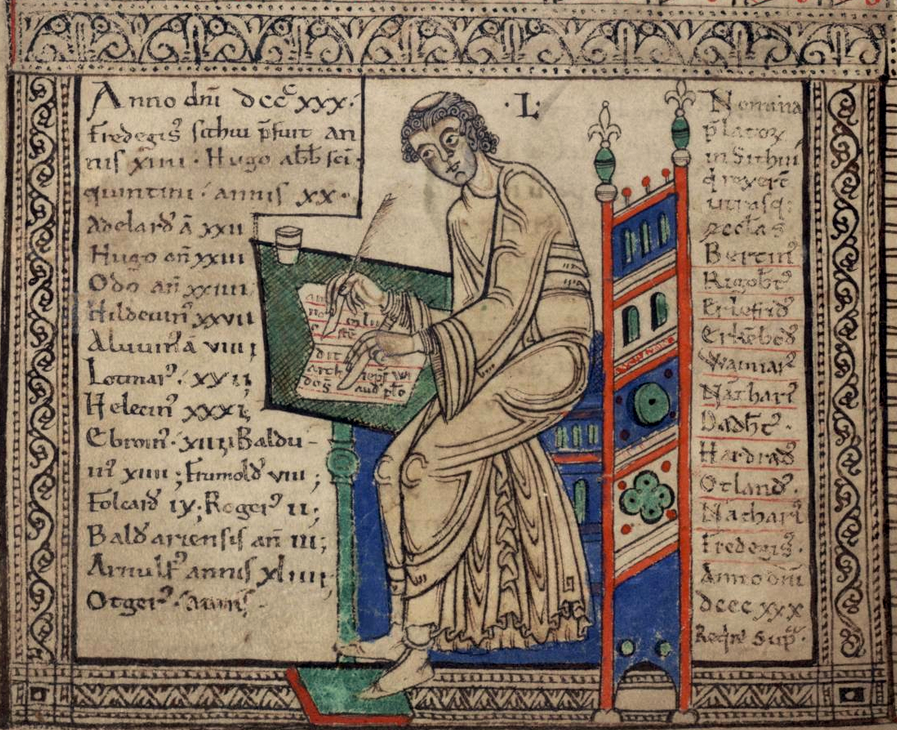 Anno dn̄i dccc̄ xxx.
Fredegis' sithiu p̄fuit an
nis xiiii. Hugo abb̄ sc̄i
quintini. annis xx.
Adelard' ā xxii
Hugo an̄ xxiii
Odo an̄ xxiiii
Hildeuin' xxvii
Aluuin' ā viii;
Lotmar'. xv
Helecin' xxxi;
Ebroin'. xiiii; Baldu-
in' xiiii; Frumold' viii;
Folcard' ix; Roger' ii;
Bald' ariensis an̄ iii;
Arnulf' annis xliiii;
Otger'. annis
.L.
Nomina
p̄lator
in Sithiu
q rexert̄
utrasq;
eccl̄as
Bertin'
Rigob̄t'
Erlefrid'
Erkēbod'
Waimar'
Nāthari'
Dadb̄t'.
Hardrad'
Otland'.
Nāthari'
Fredegis'.
Anno dn̄i
dccc xxx
Reqr̄e sup'.